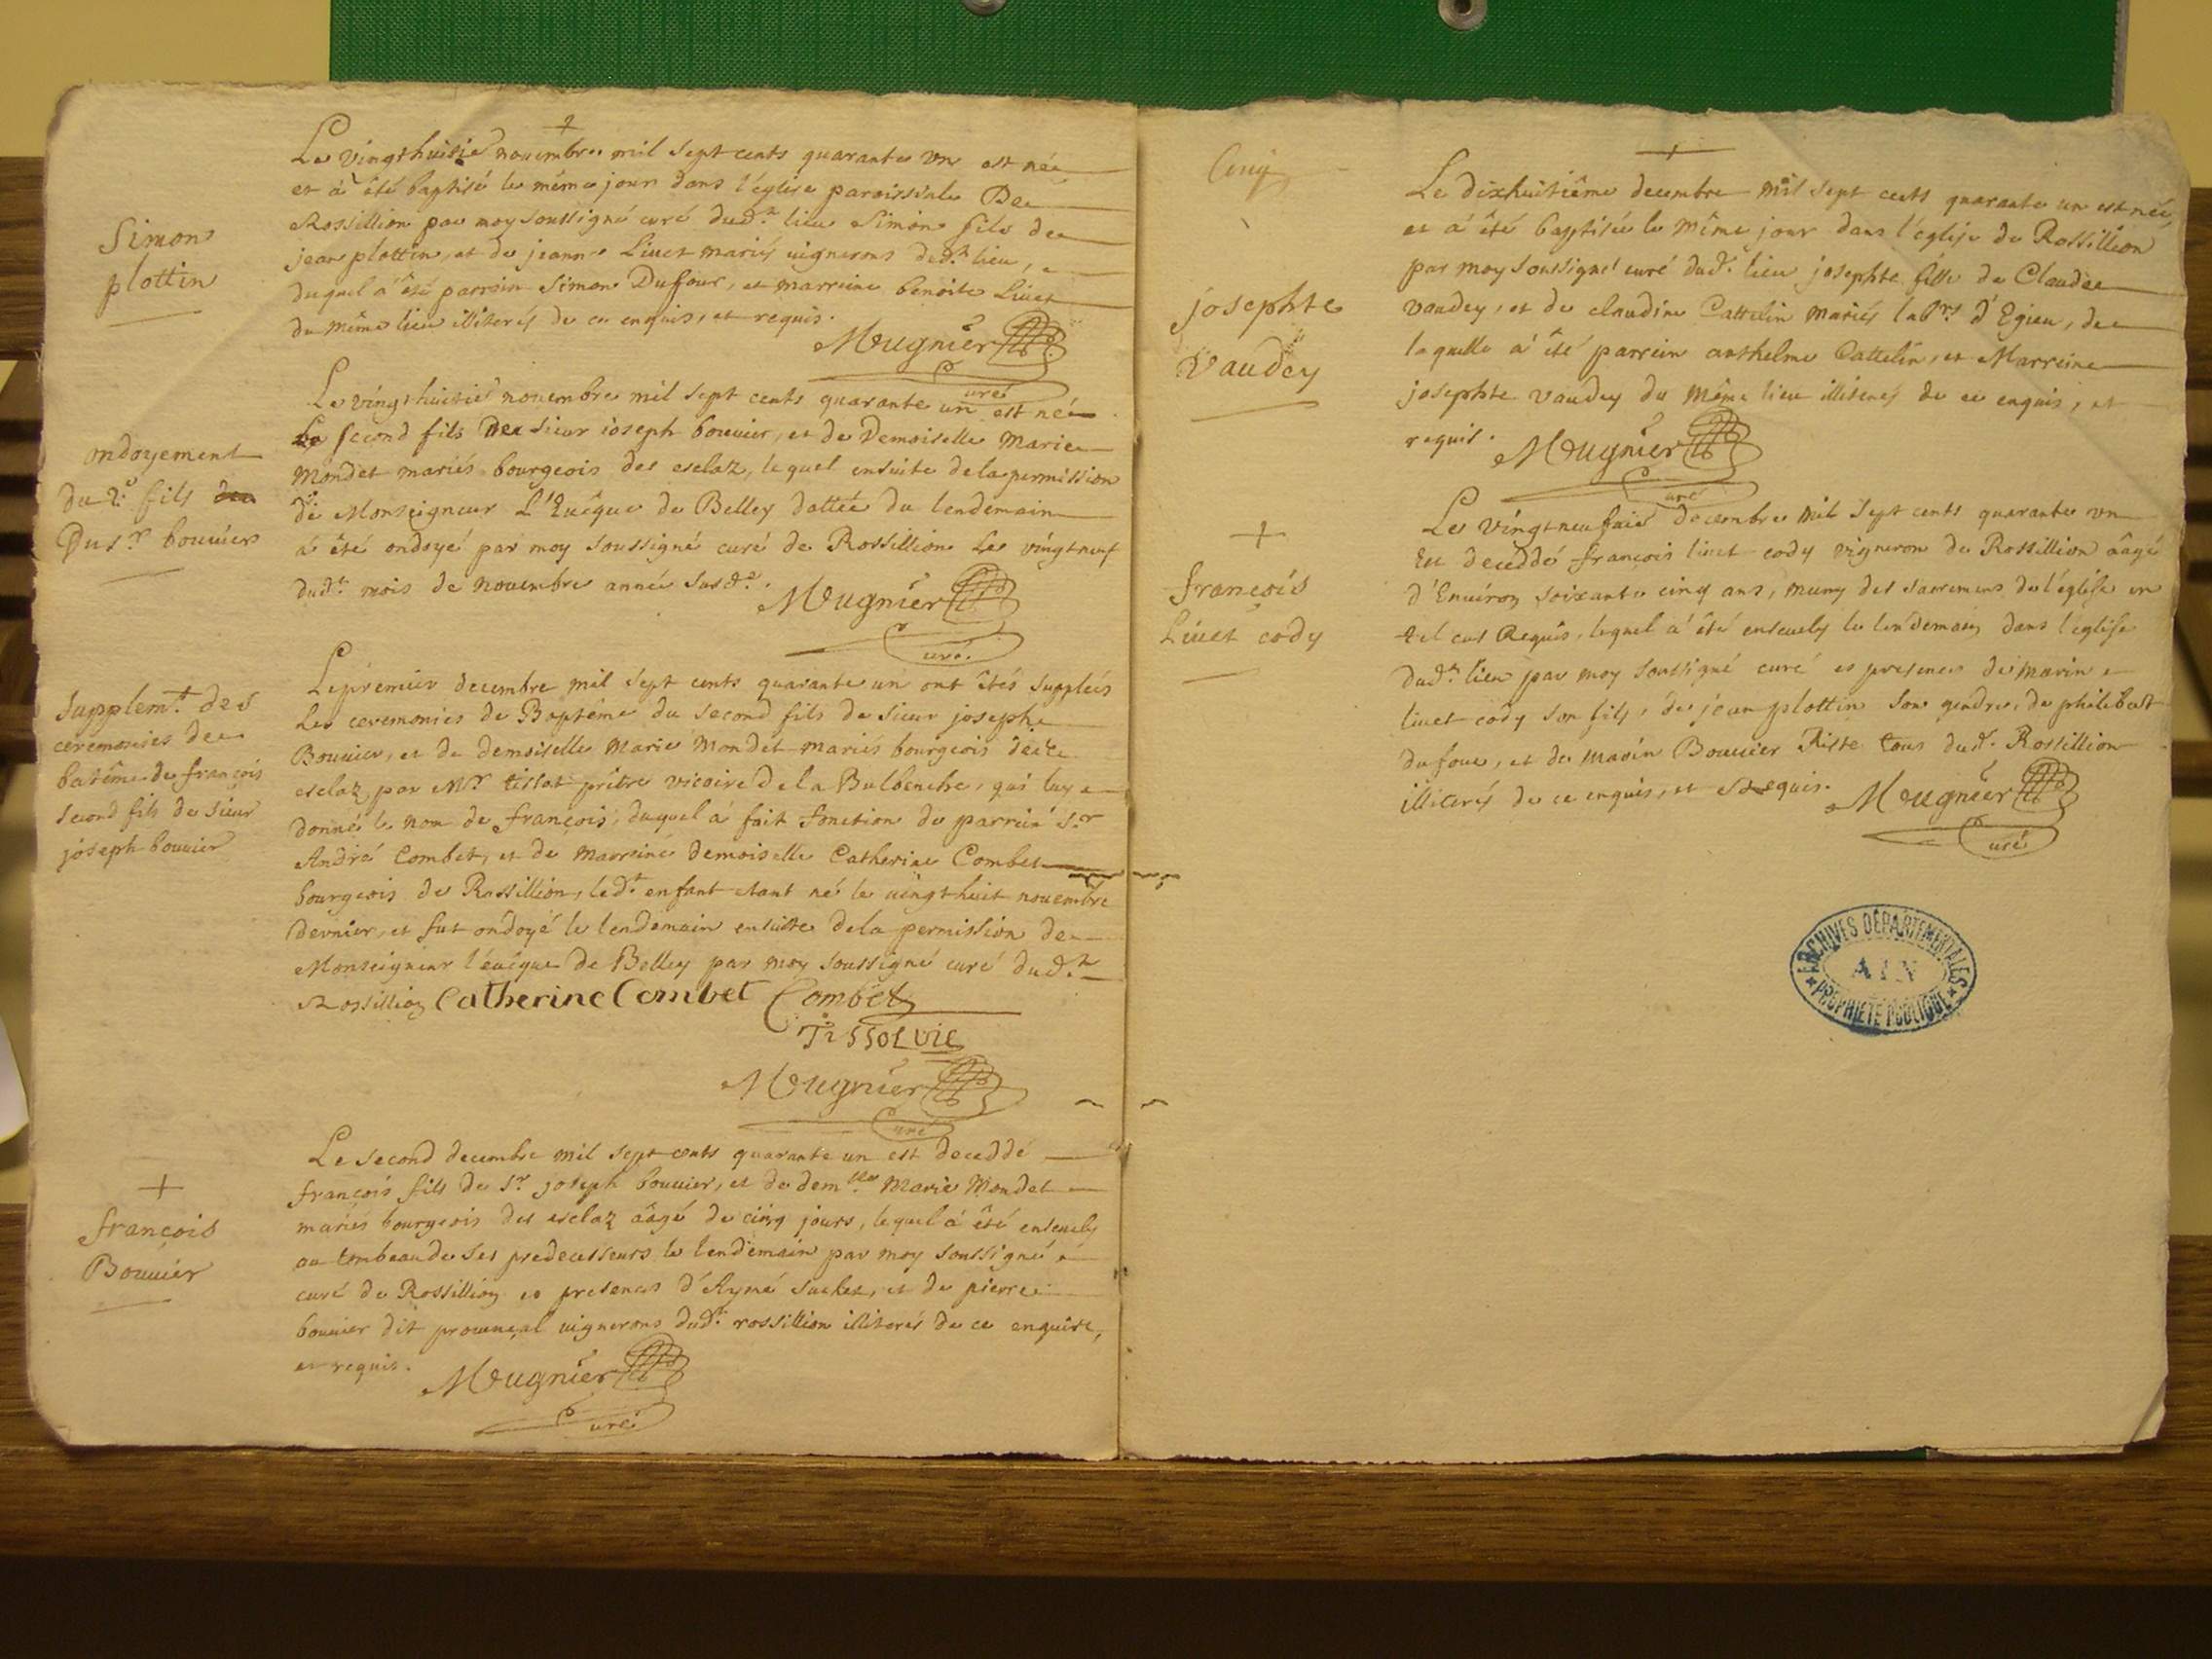 Simon
plottin
Le vingthuitie novembre mil sept cents quarante un est née
et a été baptisé le même jour dans l'église paroissiale De
Rossillion par moy soussigné curé dud.t lieu Simon fils de
jean plottin, et de jeanne Livet mariés vignerons dud.t lieu,
duquel a été parrain Simon Dufour, et marreine benoite Livet
du même lieu illiterés de ce enquis, et requis.
Meugnier
curé
ondoyement
du 2.e fils
Du s.r bouvier
Le vingthuitie novembre mil sept cents quarante un est née
Le second fils De sieur joseph bouvier, et de Demoiselle Marie
Mondet mariés bourgeois des esclaz, lequel ensuite de la permission
de Monseigneur L'Evêque de Belley dattée du lendemain
a été ondoyé par moy soussigné curé de Rossillion Le vingtneuf
dud.t mois de novembre année susd.e.
Meugnier
curé.
Supplem.t des
ceremonies de
batême de françois
second fils de sieur
joseph bouvier
Le premier decembre mil sept cents quarante un ont êtés suppleés
Les ceremonies de Baptême du second fils de sieur joseph
Bouvier, et de demoiselle Marie Mondet mariés bourgeois des
esclaz, par Mr tissot prêtre vicaire de la Balbenche, qui luy a
donné le nom de françois, duquel a fait fonction de parrein s.r
André Combet, et de marreine demoiselle Catherine Combet
bourgeois de Rossillion, led.t enfant etant né le vingthuit novembre
dernier, et fut ondoyé le lendemain ensuitte de la permission de
Monseigneur l'évêque de Belley par moy soussigné curé dud.t
Rossillion Catherine Combet Combet
Tissot vic
Meugnier
curé
françois
Bouvier
Le second decembre mil sept cents quarante un est deceddé
françois fils de s.r joseph bouvier, et de dem.lle Marie Mondet
mariés bourgeois des esclaz âagé de cinq jours, lequel a été ensevely
au tombeau de ses predecesseurs le lendemain par moy soussigné
curé de Rossillion es presences d'Aymé suchet, et de pierre
bouvier dit provençal vignerons dud.t rossillion illiterés de ce enquist,
et requis.
Meugnier
curé
Cinq
josephte
Vaudey
Le dixhuitième decembre mil sept cents quarante un est née,
et a été baptisée le même jour dans l'église de Rossillion
par moy soussigné curé dud.t lieu josephte fille de Claude
vaudey, et de claudine Cattelin mariés lab.rs d'Egieu, de
laquelle a été parrein anthelme Cattelin, et Marreine
josephte vaudey du même lieu illiterés de ce enquis, et
requis.
Meugnier
curé
françois
Livet cody
Le vingtneufvie decembre mil sept cents quarante un
Est deceddé françois livet cody vigneron de Rossillion âagé
d'Environ soixante cinq ans, muny des sacremens de l'église en
tel cas Requis, lequel a été ensevely le lendemain dans l'église
dud.t lieu par moy soussigné curé es presences de marin
livet cody son fils, de jean plottin son gendre, de philibert
dufour, et de marin Bouvier Riste tous dud.t Rossillion
illiterés de ce enquis, et requis.
Meugnier
curé
ARCHIVES DÉPARTEMENTALES
AIN
PROPRIÉTÉ PUBLIQUE